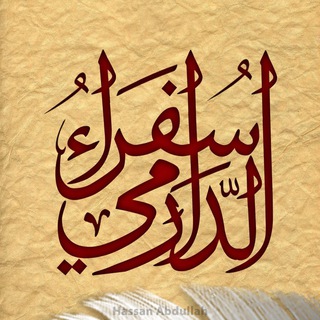 سُفَرَاءُ
الدَّارَمي
Hassan Abdullah